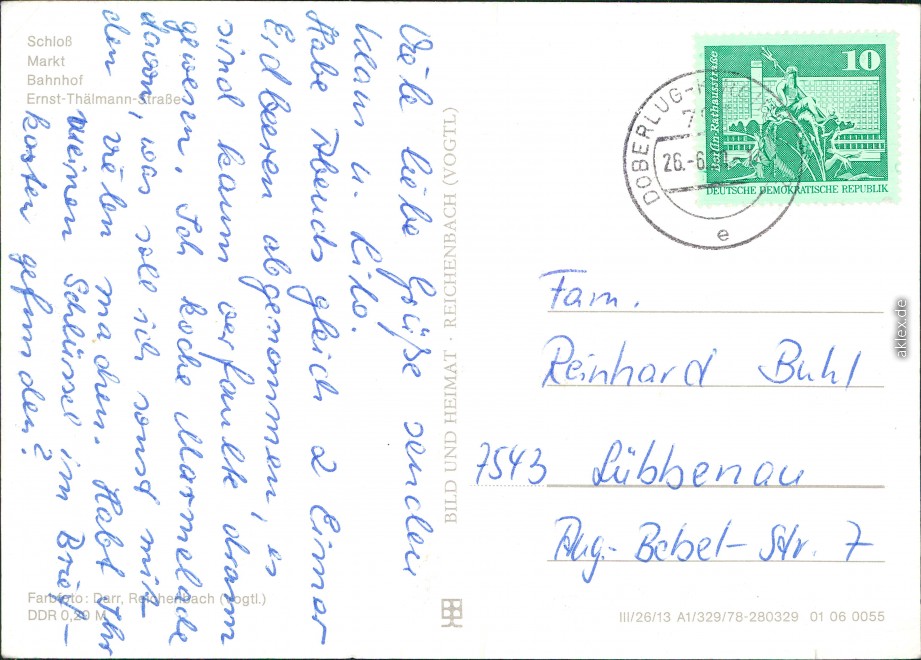 Schloß
Markt
Bahnhof
Ernst-Thälmann-Straße
Viele liebe Grüße senden
Klaus u. Lilo.
Habe Abends gleich 2 Eimer
Erdbeeren abgenommen, es
sind kaum verfaulte dran
gewesen. Ich koche Marmelade
davon, was soll ich sonst mit
den vielen machen. Habt Ihr
meinen Schlüssel im Brief-
kasten gefunden?
Farbfoto: Darr, Reichenbach (Vogtl.)
DDR 0,20 M
BILD UND HEIMAT · REICHENBACH (VOGTL)
10
Berlin-Rathausstraße
DEUTSCHE DEMOKRATISCHE REPUBLIK
DOBERLUG-
26.-6.
e
Fam.
Reinhard Buhl
7543 Lübbenau
Aug.-Bebel-Str. 7
III/26/13 A1/329/78-280329 01 06 0055
aklex.de